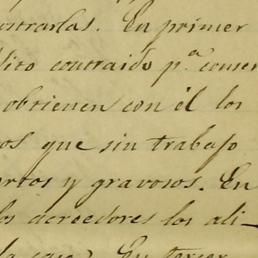 ostrarlas. En primer
dito contraido p.ª conser
obtienen con él los
os que sin trabajo
ertos y gravosos. En
los acreedores los ali-
la casa) En tercer